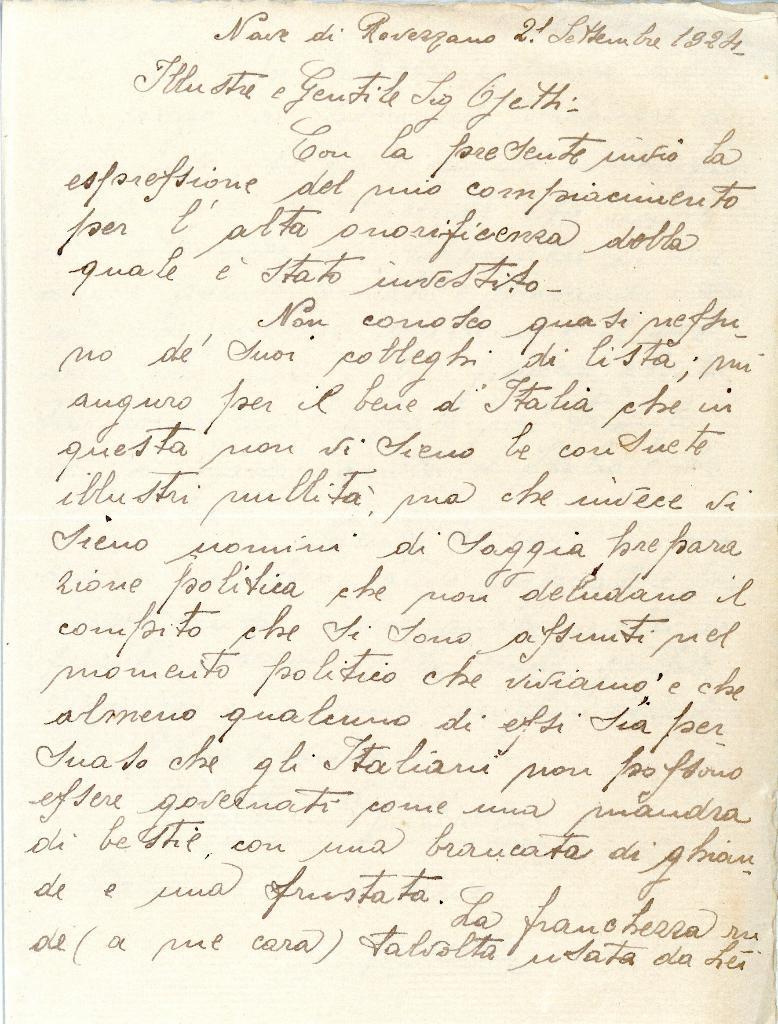 Nave di Rovezzano 21 Settembre 1924
Illustre e Gentile Sig Ojetti:
Con la presente invio la
espressione del mio compiacimento
per l'alta onorificenza della
quale è stato investito-
Non conosco quasi nessu-
no de' suoi colleghi di lista; mi
auguro per il bene d'Italia che in
questa non vi sieno le consuete
illustri nullità, ma che invece vi
sieno uomini di saggia prepara
zione politica che non deludano il
compito che si sono assunti nel
momento politico che viviamo e che
almeno qualcuno di essi sia per-
suaso che gli Italiani non possono
essere governati come una mandra
di bestie, con una brancata di ghian-
de e una frustata.
La franchezza ru
de (a me cara) talvolta usata da Lei